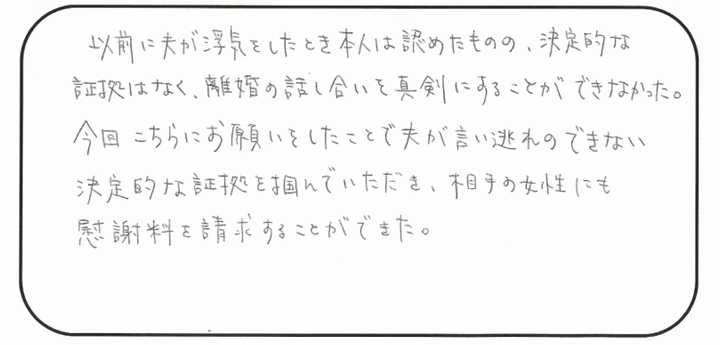 以前に夫が浮気をしたとき本人は認めたものの、決定的な
証拠はなく、離婚の話し合いを真剣にすることができなかった。
今回こちらにお願いをしたことで夫が言い逃れのできない
決定的な証拠を掴んでいただき、相手の女性にも
慰謝料を請求することができた。